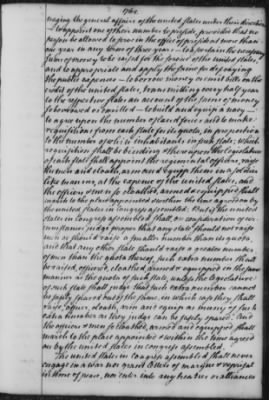 1782
naging the general affairs of the united states under their direction
— to appoint one of their number to preside, provided that no
person be allowed to serve in the office of president more than
one year in any term of three years — to ascertain the necessary
sums of money to be raised for the service of the united states,
and to appropriate and apply the same for defraying
the public expences — to borrow money or emit bills on the
credit of the united states, transmitting every half year
to the respective states an account of the sums of money
so borrowed or emitted — to build and equip a navy —
to agree upon the number of land forces, and to make
requisitions from each state for its quota, in proportion
to the number of white inhabitants in such state; which
requisition shall be binding, thereupon the legislature
of each state shall appoint the regimental officers, raise
the men and cloath, arm and equip them in a soldier
like manner, at the expence of the united states, and
the officers and men so cloathed, armed and equipped shall
march to the place appointed and within the time agreed on by
the united states in congress assembled: But if the united
states in congress assembled shall, on consideration of cir-
cumstances judge proper that any state should not raise
men or should raise a smaller number than its quota
and that any other state should raise a greater number
of men than the quota thereof, such extra number shall
be raised, officered, cloathed, armed and equipped in the same
manner as the quota of such state, unless the legislature
of such state shall judge that such extra number cannot
be safely spared out of the same, in which case they shall
raise, officer, cloath, arm and equip as many of such
extra number as they judge can be safely spared. And
the officers and men so cloathed, armed and equipped, shall
march to the place appointed and within the time agreed
on by the united states in congress assembled.
The united states in congress assembled shall never
engage in a war nor grant letters of marque and reprisal
in time of peace, nor enter into any treaties or alliances